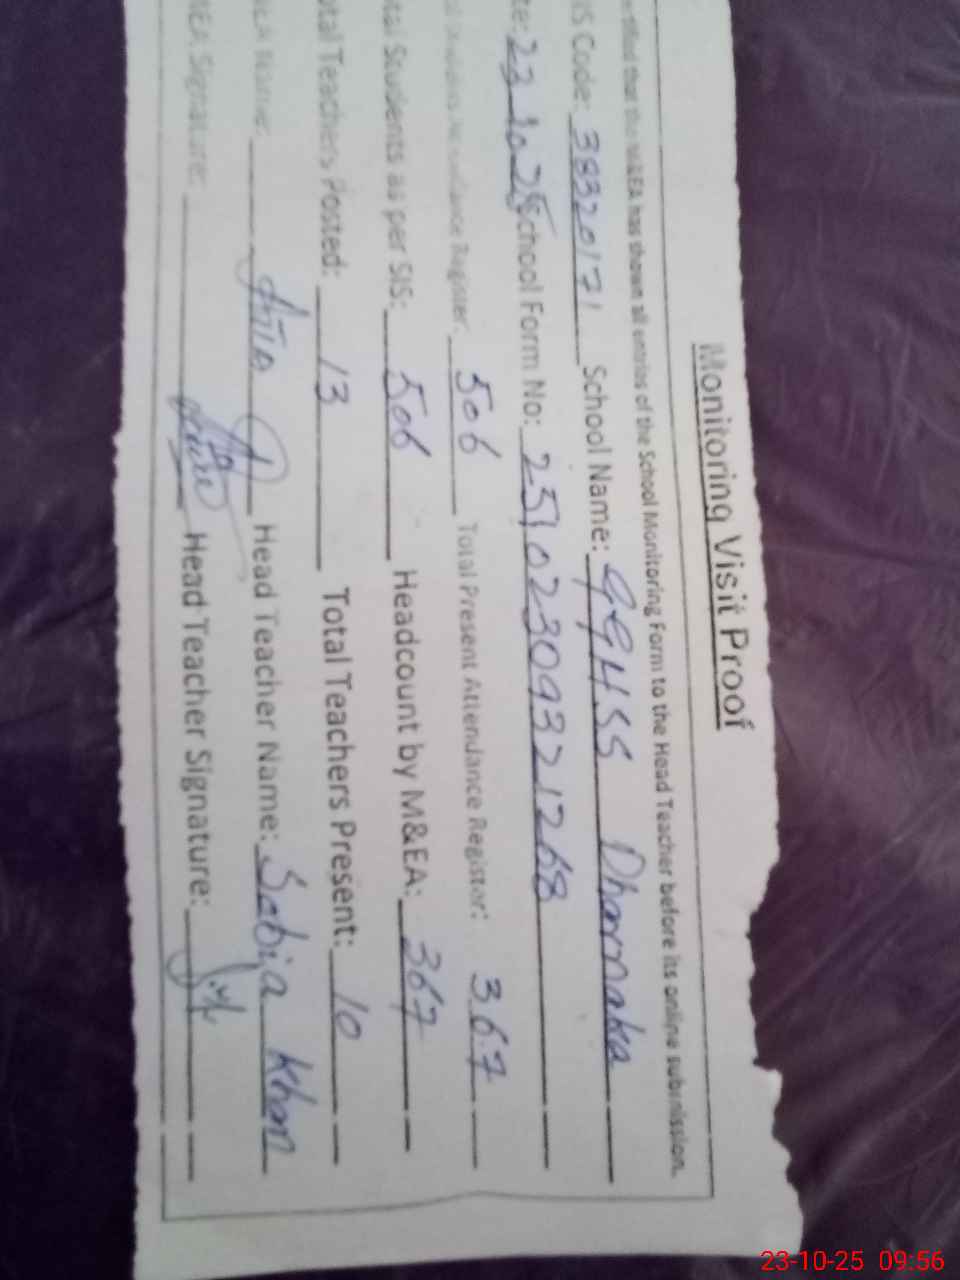 Monitoring Visit Proof
that the M&EA has shown all entries of the School Monitoring Form to the Head Teacher before its online submission.
IS Code: 38320171 School Name: GGHSS Dharnaka
te: 23 10 25 School Form No: 25102309321268
Register: 506 Total Present Attendance Register: 367
tal Students as per SIS: 506 Headcount by M&EA: 367
otal Teachers Posted: 13 Total Teachers Present: 10
Name: Head Teacher Name: Sabia Khan
MEA Signature: Head Teacher Signature:
23-10-25 09:56